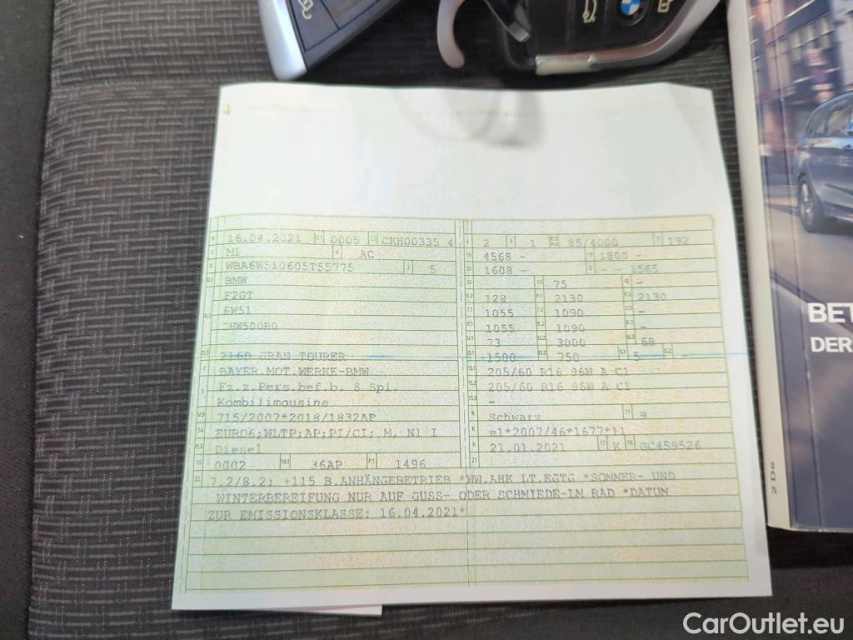 16.04.2021 0005 CRH00335 4
M1 AC
5
BMW
F2GT
6W51
216D GRAN TOURER
BAYER.MOT.WERKE-BMW
Fz.z.Pers.bef.b. 8 Spl.
Kombilimousine
715/2007*2018/1832AP
EURO6;WLTP;AP;PI/CI; M, N1 I
Diesel
0002 36AP 1496
2 1 85/4000 192
4568 - 1800 -
1608 - - - 1565
75 -
128 2130 2130
1055 1090 -
1055 1090 -
73 3000 68
1500 750 5 -
205/60 R16 96W A C1
205/60 R16 96W A C1
-
Schwarz 9
e1*2007/46*1677*11
21.01.2021 K GC459526
7.2/8.2: +115 B.ANHÄNGEBETRIEB *WW.AHK LT.EGTG *SOMMER- UND
WINTERBEREIFUNG NUR AUF GUSS- ODER SCHMIEDE-LM RAD *DATUM
ZUR EMISSIONSKLASSE: 16.04.2021*
BET
DER
CarOutlet.eu